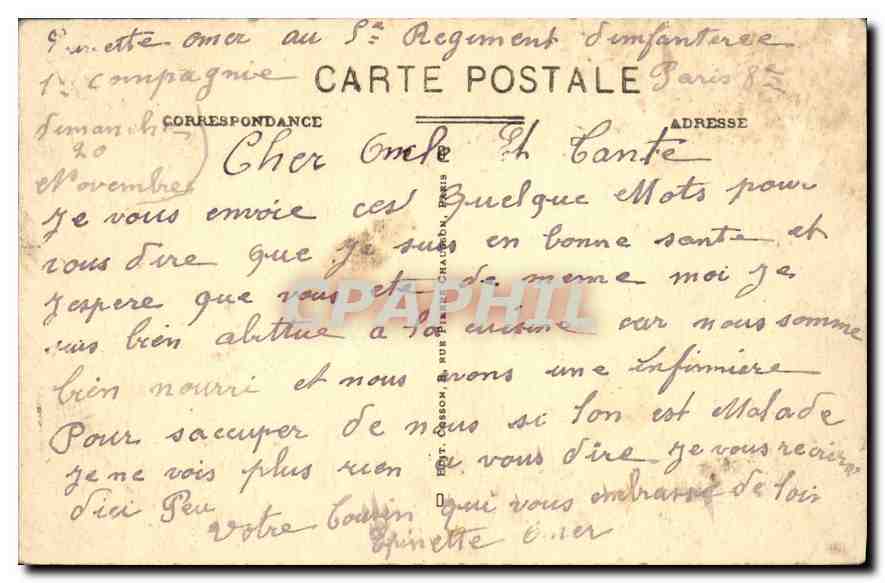 Epinette omer au 5e Regiment d'infanterie
1e Compagnie
CARTE POSTALE
Paris 8e
CORRESPONDANCE
ADRESSE
dimanche
20
Novembre
Cher Oncle Et Tante
Je vous envoie ces quelque Mots pour
vous dire que je suis en bonne sante et
J'espere que vous ete de meme moi Je
suis bien abittue a la cuisine car nous somme
bien nourri et nous avons une infirmiere
Pour saccuper de nous si lon est Malade
Je ne vois plus rien a vous dire Je vous recrirai
dici Peu
Votre Cousin qui vous embrasse de loin
Epinette Omer
EDIT. COSSON, RUE PIERRE CHAUSSON, PARIS
CPAPHIL